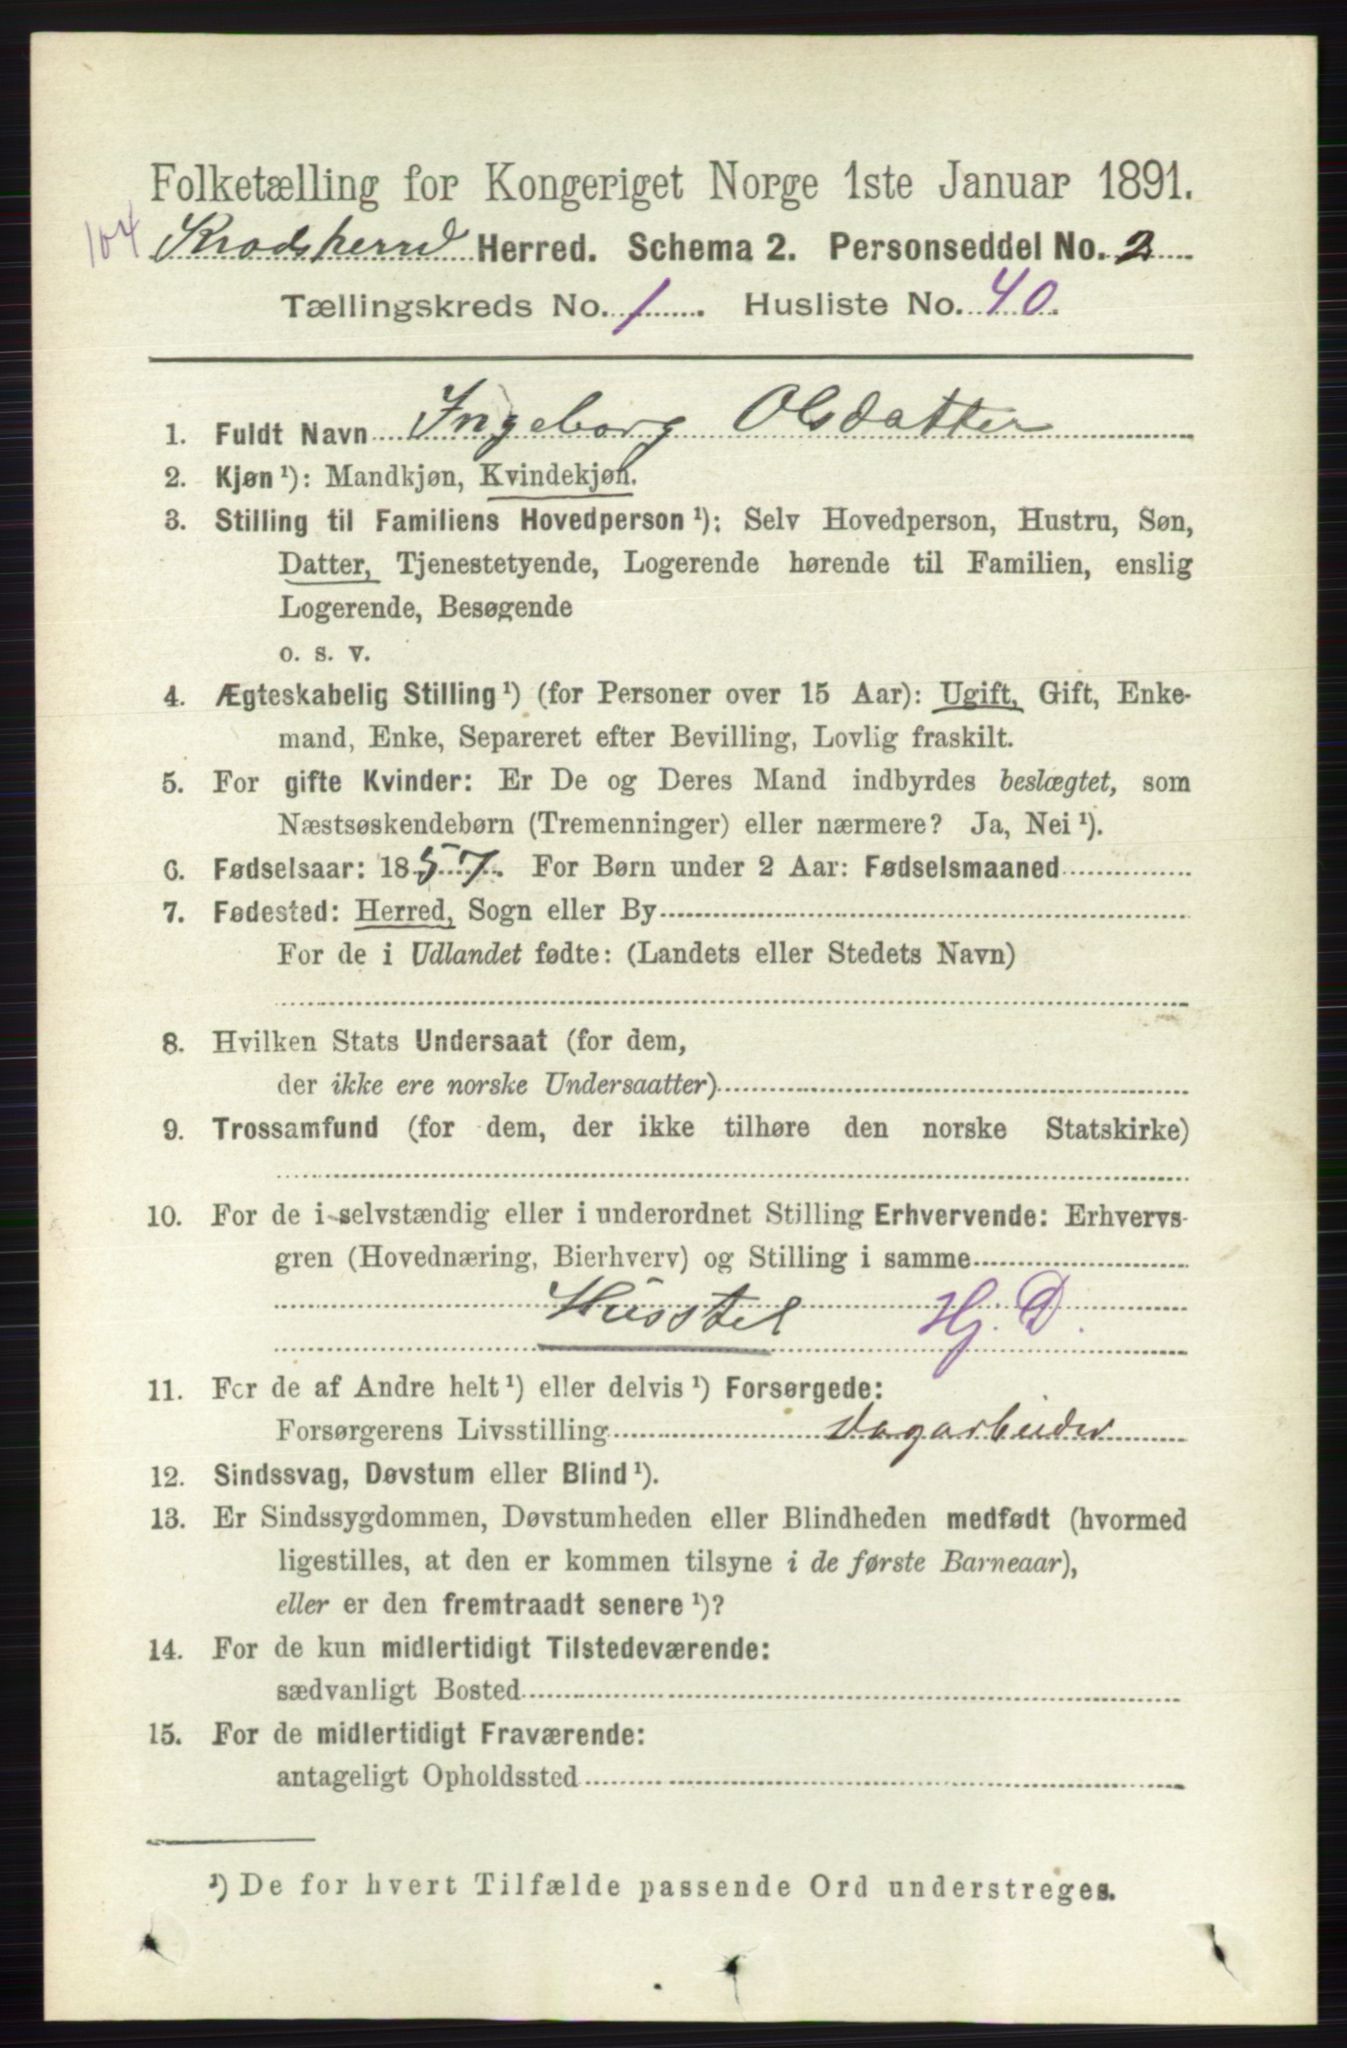 Folketælling for Kongeriget Norge 1ste Januar 1891.
104 Krodsherred Herred. Schema 2. Personseddel No. 2
Tællingskreds No. 1. Husliste No. 40.
1. Fuldt Navn Ingeborg Olsdatter
2. Kjøn ¹): Mandkjøn, Kvindekjøn.
3. Stilling til Familiens Hovedperson ¹): Selv Hovedperson, Hustru, Søn,
Datter, Tjenestetyende, Logerende hørende til Familien, enslig
Logerende, Besøgende
o. s. v.
4. Ægteskabelig Stilling ¹) (for Personer over 15 Aar): Ugift, Gift, Enke-
mand, Enke, Separeret efter Bevilling, Lovlig fraskilt.
5. For gifte Kvinder: Er De og Deres Mand indbyrdes beslægtet, som
Næstsøskendebørn (Tremenninger) eller nærmere? Ja, Nei ¹).
6. Fødselsaar: 1857. For Børn under 2 Aar: Fødselsmaaned
7. Fødested: Herred, Sogn eller By
For de i Udlandet fødte: (Landets eller Stedets Navn)
8. Hvilken Stats Undersaat (for dem,
der ikke ere norske Undersaatter)
9. Trossamfund (for dem, der ikke tilhøre den norske Statskirke)
10. For de i selvstændig eller i underordnet Stilling Erhvervende: Erhvervs-
gren (Hovednæring, Bierhverv) og Stilling i samme
Husstel Hj. D.
11. For de af Andre helt ¹) eller delvis ¹) Forsørgede:
Forsørgerens Livsstilling Dagarbeider
12. Sindssvag, Døvstum eller Blind ¹).
13. Er Sindssygdommen, Døvstumheden eller Blindheden medfødt (hvormed
ligestilles, at den er kommen tilsyne i de første Barneaar),
eller er den fremtraadt senere ¹)?
14. For de kun midlertidigt Tilstedeværende:
sædvanligt Bosted
15. For de midlertidigt Fraværende:
antageligt Opholdssted
¹) De for hvert Tilfælde passende Ord understreges.